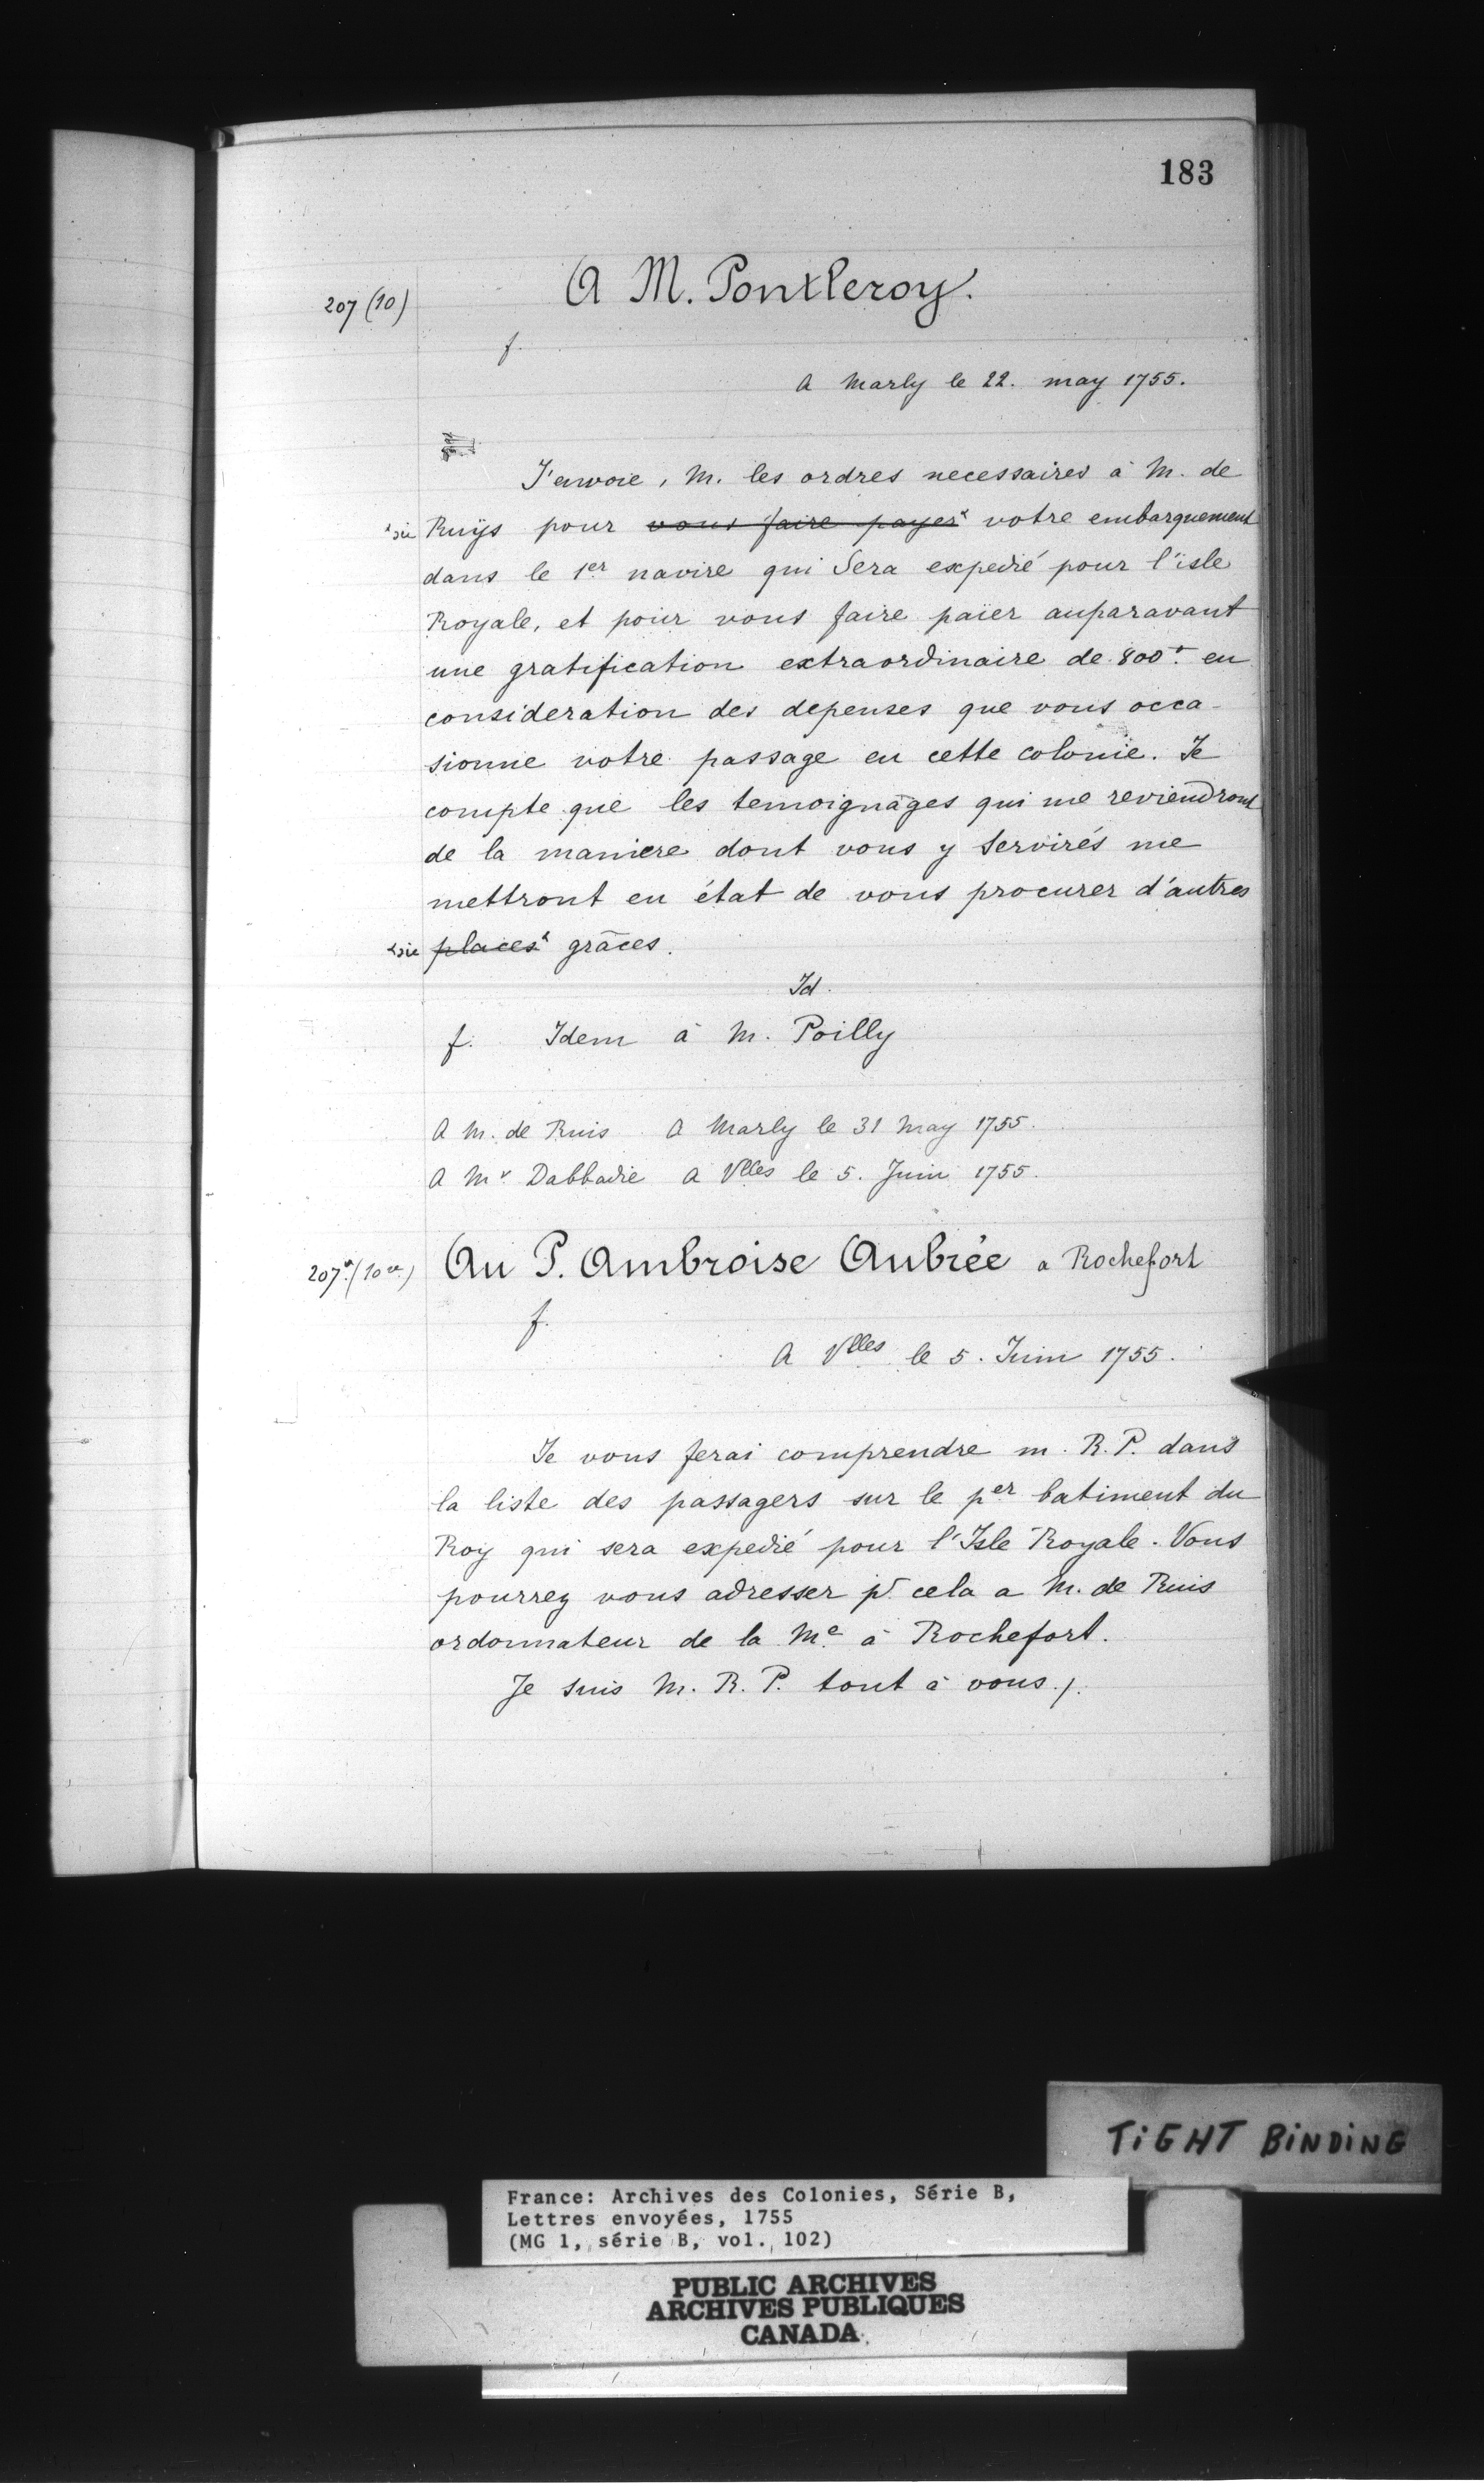 183
207 (10)
A M. Pontleroy.
f.
A Marly le 22. may 1755.
J'envoie, M. les ordres necessaires à M. de
*sic Ruÿs pour vous faire payer* votre embarquement
dans le 1er navire qui Sera expedié pour l'isle
Royale, et pour vous faire païer auparavant
une gratification extraordinaire de 800# en
consideration des depenses que vous occa-
sionne votre passage en cette colonie. Je
compte que les temoignages qui me reviendront
de la maniere dont vous y servirés me
mettront en état de vous procurer d'autres
*sic places* grâces.
Id.
f. Idem à M. Poilly
A M. de Ruis A Marly le 31 May 1755.
A Mr Dabbadie A Vlles le 5. Juin 1755.
207 vo (10 vo)
Au P. Ambroise Aubrée a Rochefort
f.
A Vlles le 5. Juin 1755.
Je vous ferai comprendre m. R. P. dans
la liste des passagers sur le per batiment du
Roy qui sera expedié pour l'Isle Royale. Vous
pourrez vous adresser pr cela a M. de Ruis
ordonnateur de la Me à Rochefort.
Je suis M. R. P. tout à vous./.
TIGHT BINDING
France: Archives des Colonies, Série B,
Lettres envoyées, 1755
(MG 1, série B, vol. 102)
PUBLIC ARCHIVES
ARCHIVES PUBLIQUES
CANADA